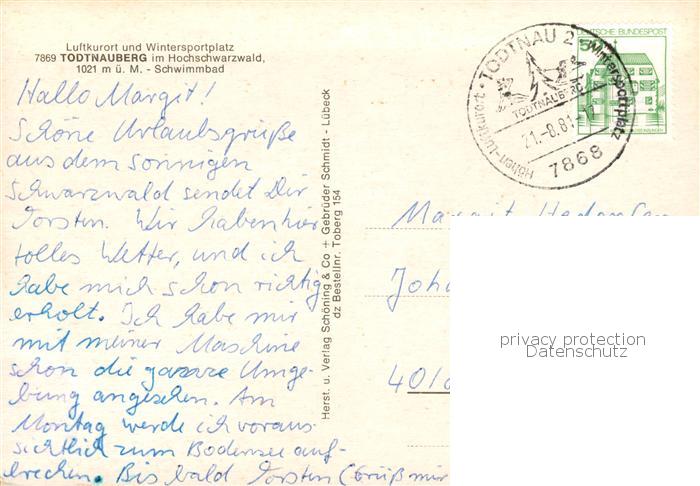 Luftkurort und Wintersportplatz
7869 TODTNAUBERG im Hochschwarzwald,
1021 m ü. M. - Schwimmbad
Hallo Margit!
Schöne Urlaubsgrüße
aus dem sonnigen
Schwarzwald sendet Dir
Torsten. Wir haben hier
tolles Wetter, und ich
habe mich schon richtig
erholt. Ich habe mir
mit meiner Maschine
schon die ganze Umge-
bung angesehen. Am
Montag werde ich voraus-
sichtlich zum Bodensee auf-
brechen. Bis bald Torsten (Grüß mir
Herst. u. Verlag Schöning & Co + Gebrüder Schmidt - Lübeck
dz Bestellnr. Toberg 154
DEUTSCHE BUNDESPOST
50
TODTNAU 2
Wintersportplatz
Höhen-Luftkurort
TODTNAUBERG
21.-8.81-
7868
Margit
Joh
40
privacy protection
Datenschutz